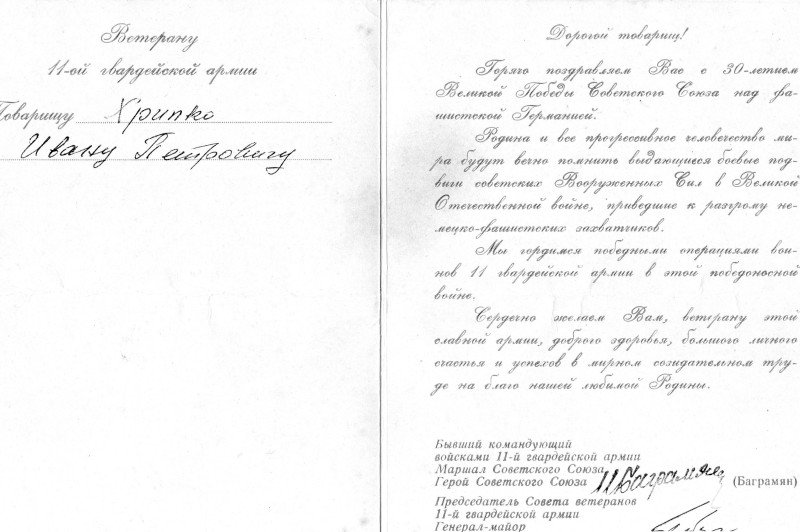 Ветерану
11-ой гвардейской армии
Товарищу Хрипко
Ивану Петровичу
Дорогой товарищ!
Горячо поздравляем Вас с 30-летием
Великой Победы Советского Союза над фа-
шистской Германией.
Родина и все прогрессивное человечество ми-
ра будут вечно помнить выдающиеся боевые под-
виги советских Вооруженных Сил в Великой
Отечественной войне, приведшие к разгрому не-
мецко-фашистских захватчиков.
Мы гордимся победными операциями вои-
нов 11 гвардейской армии в этой победоносной
войне.
Сердечно желаем Вам, ветерану этой
славной армии, доброго здоровья, большого личного
счастья и успехов в мирном созидательном тру-
де на благо нашей любимой Родины.
Бывший командующий
войсками 11-й гвардейской армии
Маршал Советского Союза
Герой Советского Союза ИБаграмян (Баграмян)
Председатель Совета ветеранов
11-й гвардейской армии
Генерал-майор